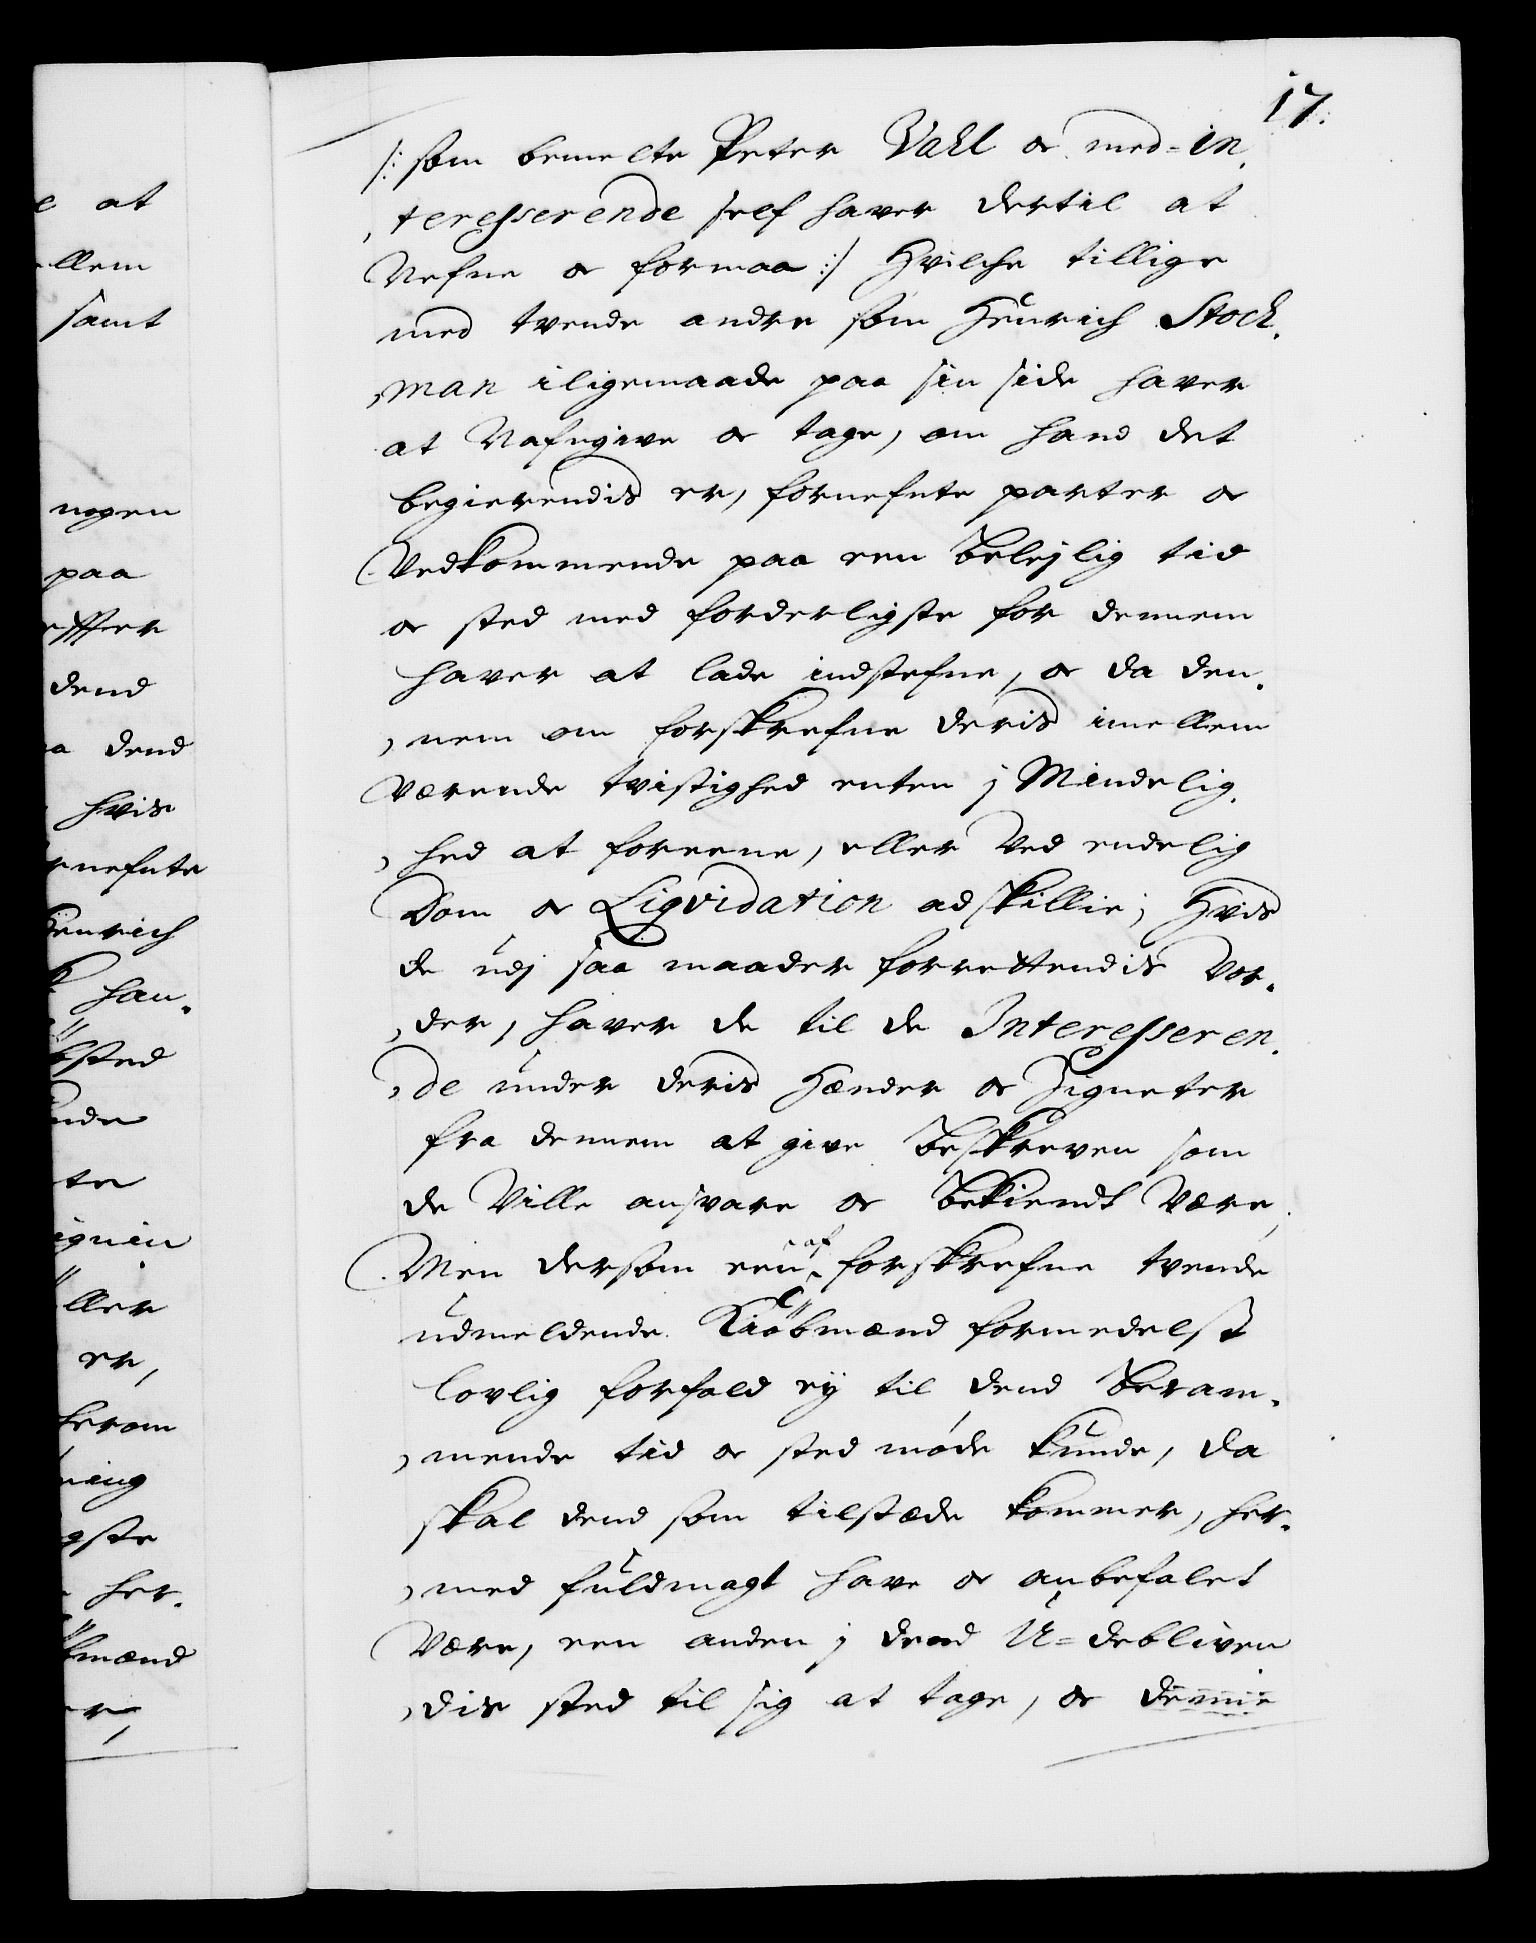 17.
/: som bemelte Peter Vahl oc med-in,
,teresserende self haver dertil at
Nefne oc formaa :/ Hvilche tillige
med tvende andre som Henrich Stock,
,man iligemaade paa sin side haver
at Nafngive oc tage, om hand det
begierendis er, fornefnte parter oc
Vedkommende paa een Belejlig tid
oc sted med forderligste for dennem
haver at lade indstefne, oc da den,
,nem om forskrefne deris imellem
værende tvistighed enten j Mindelig,
,hed at foreene, eller Ved endelig
Dom oc Liqvidation adskillie; Hvis
de udj saa maader forrettendis vor,
,der, haver de til de Interesseren,
,de under deris Hænder oc Zigneter
fra dennem at give Beskreven som
de Ville ansvare oc Bekiendt være;
Men dersom een af forskrefne tvende
udmeldende Kiøbmænd formedelst
lovlig forfald ey til dend Beram,
,mende tid oc sted møde kunde, da
skal dend som tilstæde kommer, her,
,med fuldmagt have oc anbefalet
være, een anden j dend U=debliven
,dis sted til sig at tage, oc denne
e at
llem
samt
nogen
paa
effter
dend
a dend
hvis
rnefnte
Henrich
han,
sted
te
ller
er,
herom
ning
gste
her,
bmænd